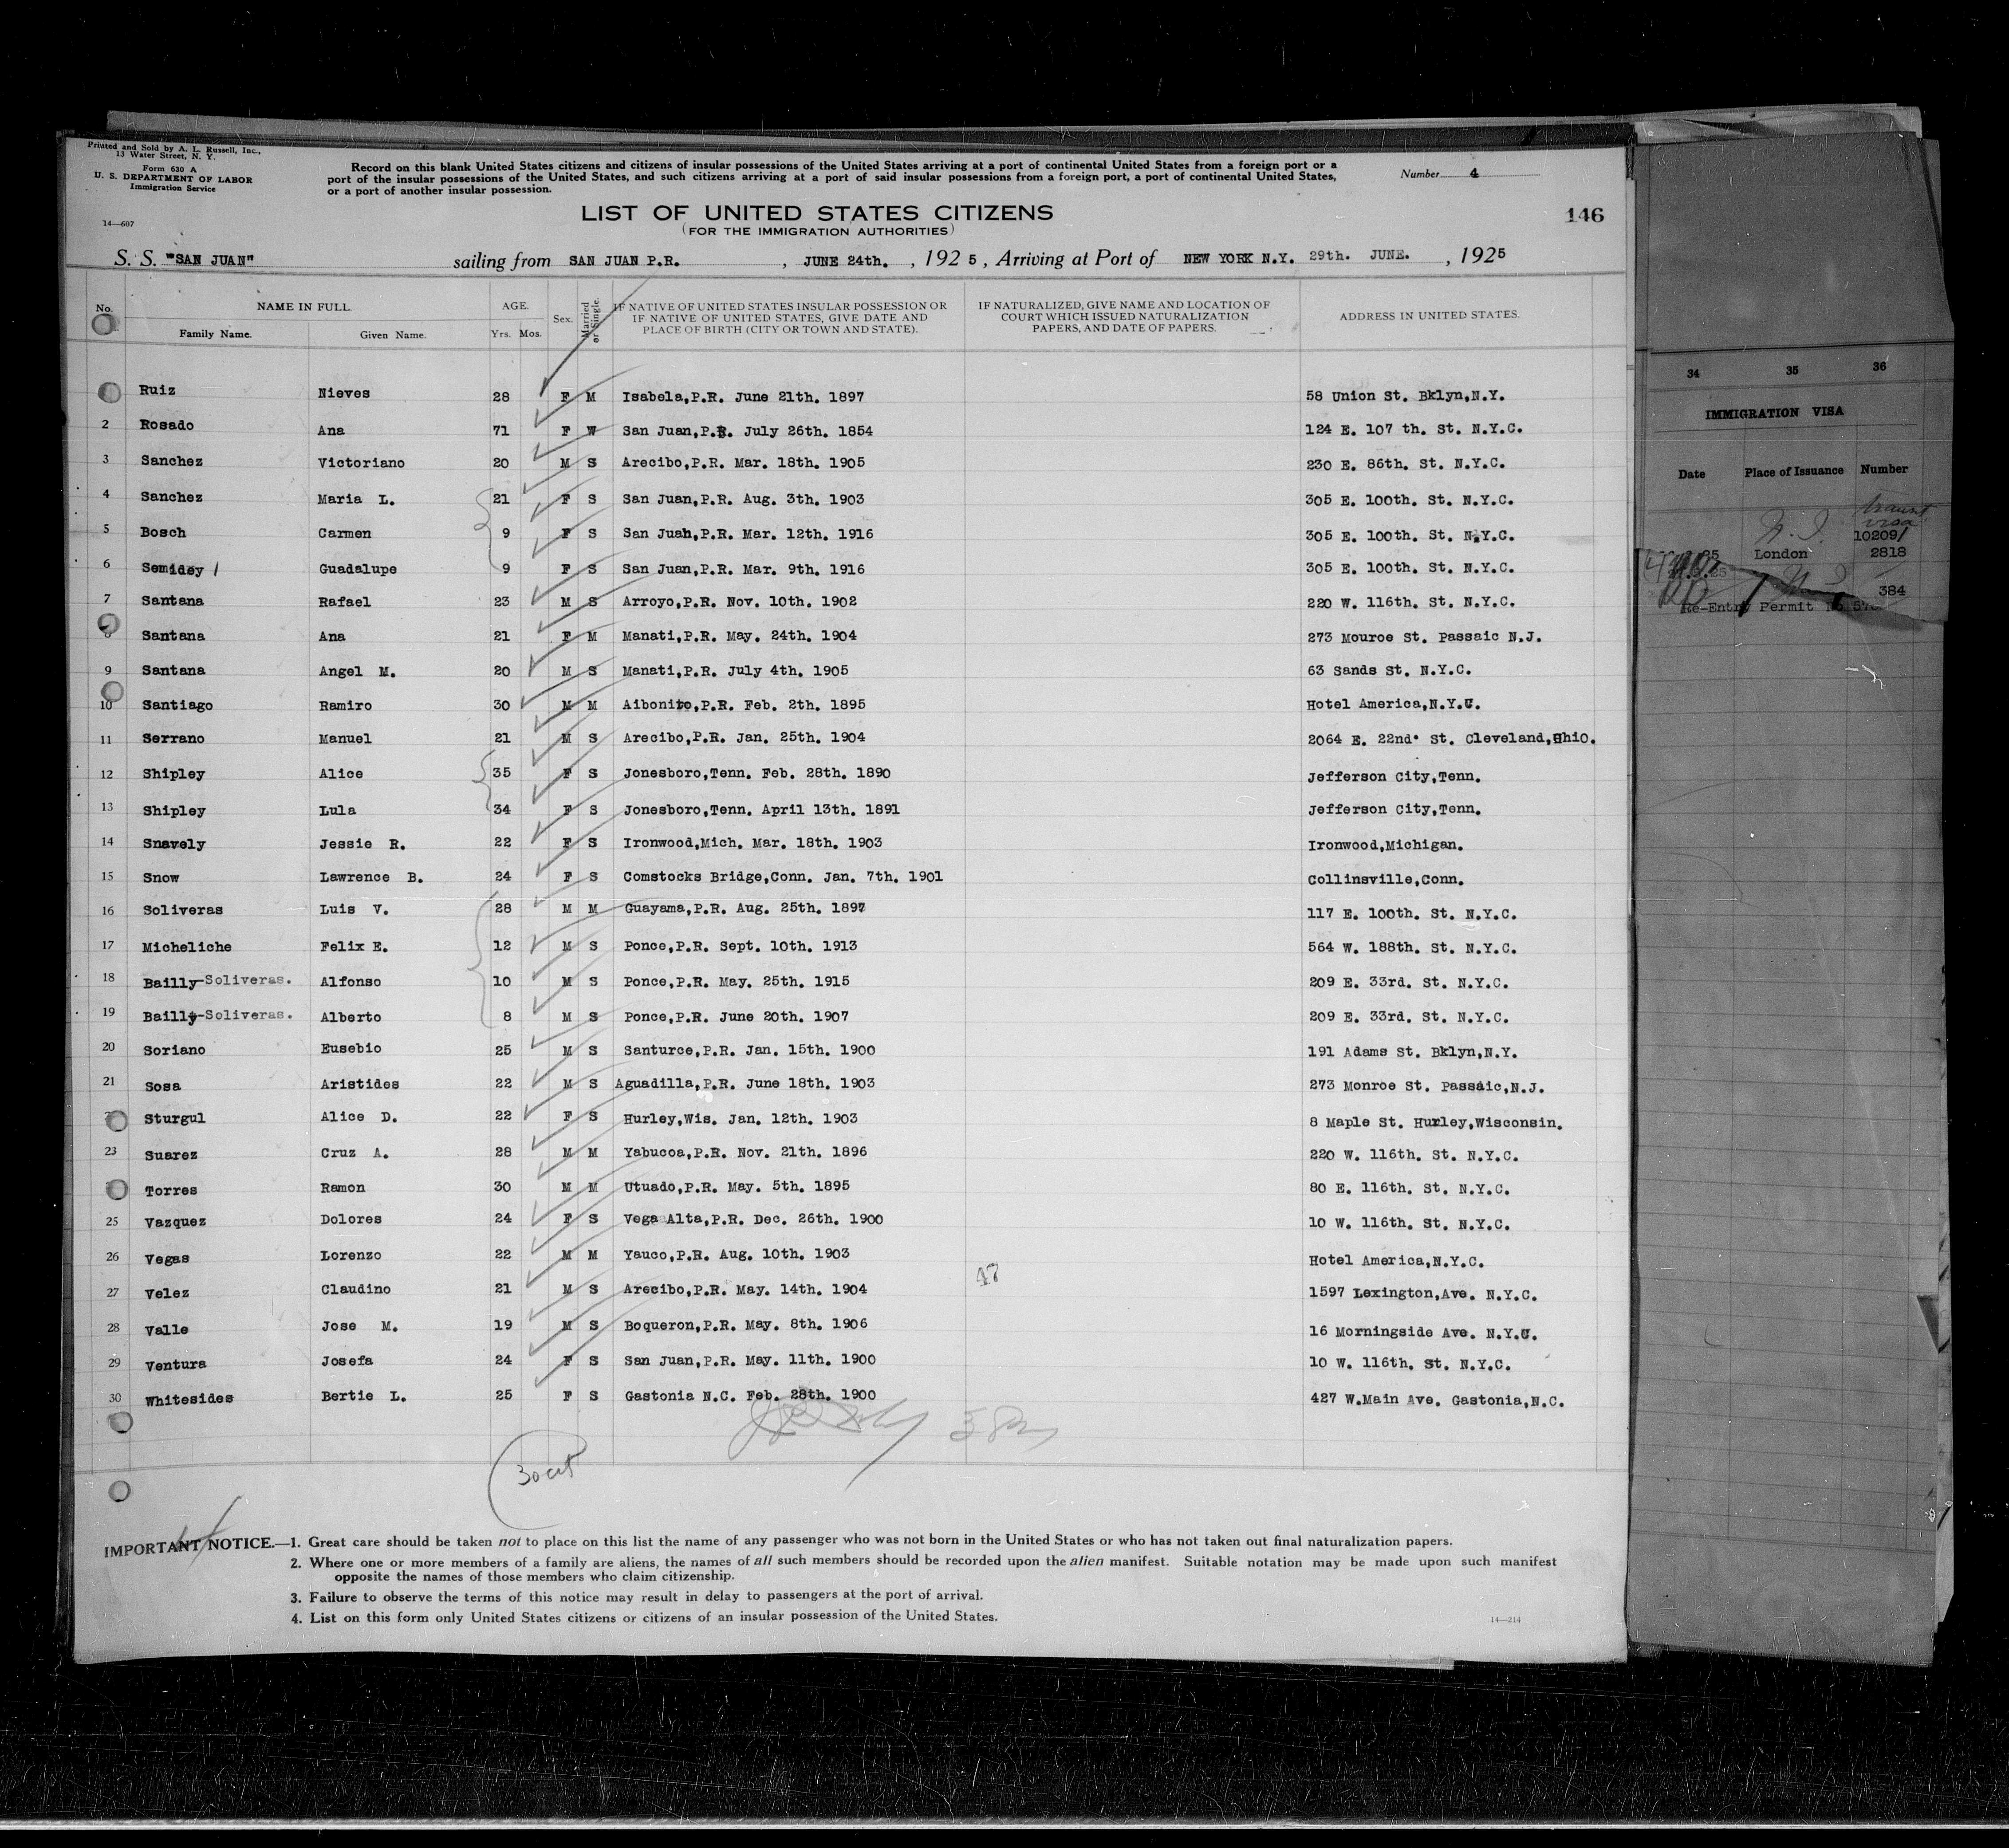 Printed and Sold by A. L. Russell, Inc.,
13 Water Street, N. Y.
Form 630 A
U. S. DEPARTMENT OF LABOR
Immigration Service
14—607
Record on this blank United States citizens and citizens of insular possessions of the United States arriving at a port of continental United States from a foreign port or a
port of the insular possessions of the United States, and such citizens arriving at a port of said insular possessions from a foreign port, a port of continental United States,
or a port of another insular possession.
Number 4
LIST OF UNITED STATES CITIZENS
(FOR THE IMMIGRATION AUTHORITIES)
146
S. S. "SAN JUAN" sailing from SAN JUAN P.R. , JUNE 24th. , 192 5 , Arriving at Port of NEW YORK N.Y. 29th. JUNE. , 1925
No. NAME IN FULL. AGE. Sex. Married or Single. IF NATIVE OF UNITED STATES INSULAR POSSESSION OR IF NATIVE OF UNITED STATES, GIVE DATE AND PLACE OF BIRTH (CITY OR TOWN AND STATE). IF NATURALIZED, GIVE NAME AND LOCATION OF COURT WHICH ISSUED NATURALIZATION PAPERS, AND DATE OF PAPERS. ADDRESS IN UNITED STATES.
Family Name. Given Name. Yrs. Mos.
Ruiz Nieves 28 F M Isabela,P.R. June 21th. 1897 58 Union St. Bklyn,N.Y.
2 Rosado Ana 71 F W San Juan,P.R. July 26th. 1854 124 E. 107 th. St. N.Y.C.
3 Sanchez Victoriano 20 M S Arecibo,P.R. Mar. 18th. 1905 230 E. 86th. St. N.Y.C.
4 Sanchez Maria L. 21 F S San Juan,P.R. Aug. 3th. 1903 305 E. 100th. St. N.Y.C.
5 Bosch Carmen 9 F S San Juan,P.R. Mar. 12th. 1916 305 E. 100th. St. N.Y.C.
6 Semidey Guadalupe 9 F S San Juan,P.R. Mar. 9th. 1916 305 E. 100th. St. N.Y.C.
7 Santana Rafael 23 M S Arroyo,P.R. Nov. 10th. 1902 220 W. 116th. St. N.Y.C.
8 Santana Ana 21 F M Manati,P.R. May. 24th. 1904 273 Mouroe St. Passaic N.J.
9 Santana Angel M. 20 M S Manati,P.R. July 4th. 1905 63 Sands St. N.Y.C.
10 Santiago Ramiro 30 M M Aibonito,P.R. Feb. 2th. 1895 Hotel America,N.Y.C.
11 Serrano Manuel 21 M S Arecibo,P.R. Jan. 25th. 1904 2064 E. 22nd. St. Cleveland,Ohio.
12 Shipley Alice 35 F S Jonesboro,Tenn. Feb. 28th. 1890 Jefferson City,Tenn.
13 Shipley Lula 34 F S Jonesboro,Tenn. April 13th. 1891 Jefferson City,Tenn.
14 Snavely Jessie R. 22 F S Ironwood,Mich. Mar. 18th. 1903 Ironwood,Michigan.
15 Snow Lawrence B. 24 F S Comstocks Bridge,Conn. Jan. 7th. 1901 Collinsville,Conn.
16 Soliveras Luis V. 28 M M Guayama,P.R. Aug. 25th. 1897 117 E. 100th. St. N.Y.C.
17 Micheliche Felix E. 12 M S Ponce,P.R. Sept. 10th. 1913 564 W. 188th. St. N.Y.C.
18 Bailly-Soliveras. Alfonso 10 M S Ponce,P.R. May. 25th. 1915 209 E. 33rd. St. N.Y.C.
19 Bailly-Soliveras. Alberto 8 M S Ponce,P.R. June 20th. 1907 209 E. 33rd. St. N.Y.C.
20 Soriano Eusebio 25 M S Santurce,P.R. Jan. 15th. 1900 191 Adams St. Bklyn,N.Y.
21 Sosa Aristides 22 M S Aguadilla,P.R. June 18th. 1903 273 Monroe St. Passaic,N.J.
Sturgul Alice D. 22 F S Hurley,Wis. Jan. 12th. 1903 8 Maple St. Hurley,Wisconsin.
23 Suarez Cruz A. 28 M M Yabucoa,P.R. Nov. 21th. 1896 220 W. 116th. St. N.Y.C.
Torres Ramon 30 M M Utuado,P.R. May. 5th. 1895 80 E. 116th. St. N.Y.C.
25 Vazquez Dolores 24 F S Vega Alta,P.R. Dec. 26th. 1900 10 W. 116th. St. N.Y.C.
26 Vegas Lorenzo 22 M M Yauco,P.R. Aug. 10th. 1903 Hotel America,N.Y.C.
27 Velez Claudino 21 M S Arecibo,P.R. May. 14th. 1904 47 1597 Lexington,Ave. N.Y.C.
28 Valle Jose M. 19 M S Boqueron,P.R. May. 8th. 1906 16 Morningside Ave. N.Y.C.
29 Ventura Josefa 24 F S San Juan,P.R. May. 11th. 1900 10 W. 116th. St. N.Y.C.
30 Whitesides Bertie L. 25 F S Gastonia N.C. Feb. 28th. 1900 427 W.Main Ave. Gastonia,N.C.
30 cit
IMPORTANT NOTICE.—1. Great care should be taken not to place on this list the name of any passenger who was not born in the United States or who has not taken out final naturalization papers.
2. Where one or more members of a family are aliens, the names of all such members should be recorded upon the alien manifest. Suitable notation may be made upon such manifest
opposite the names of those members who claim citizenship.
3. Failure to observe the terms of this notice may result in delay to passengers at the port of arrival.
4. List on this form only United States citizens or citizens of an insular possession of the United States.
14—214
34 35 36
IMMIGRATION VISA
Date Place of Issuance Number
visa
10209
London 2818
384
Re-Entry Permit No